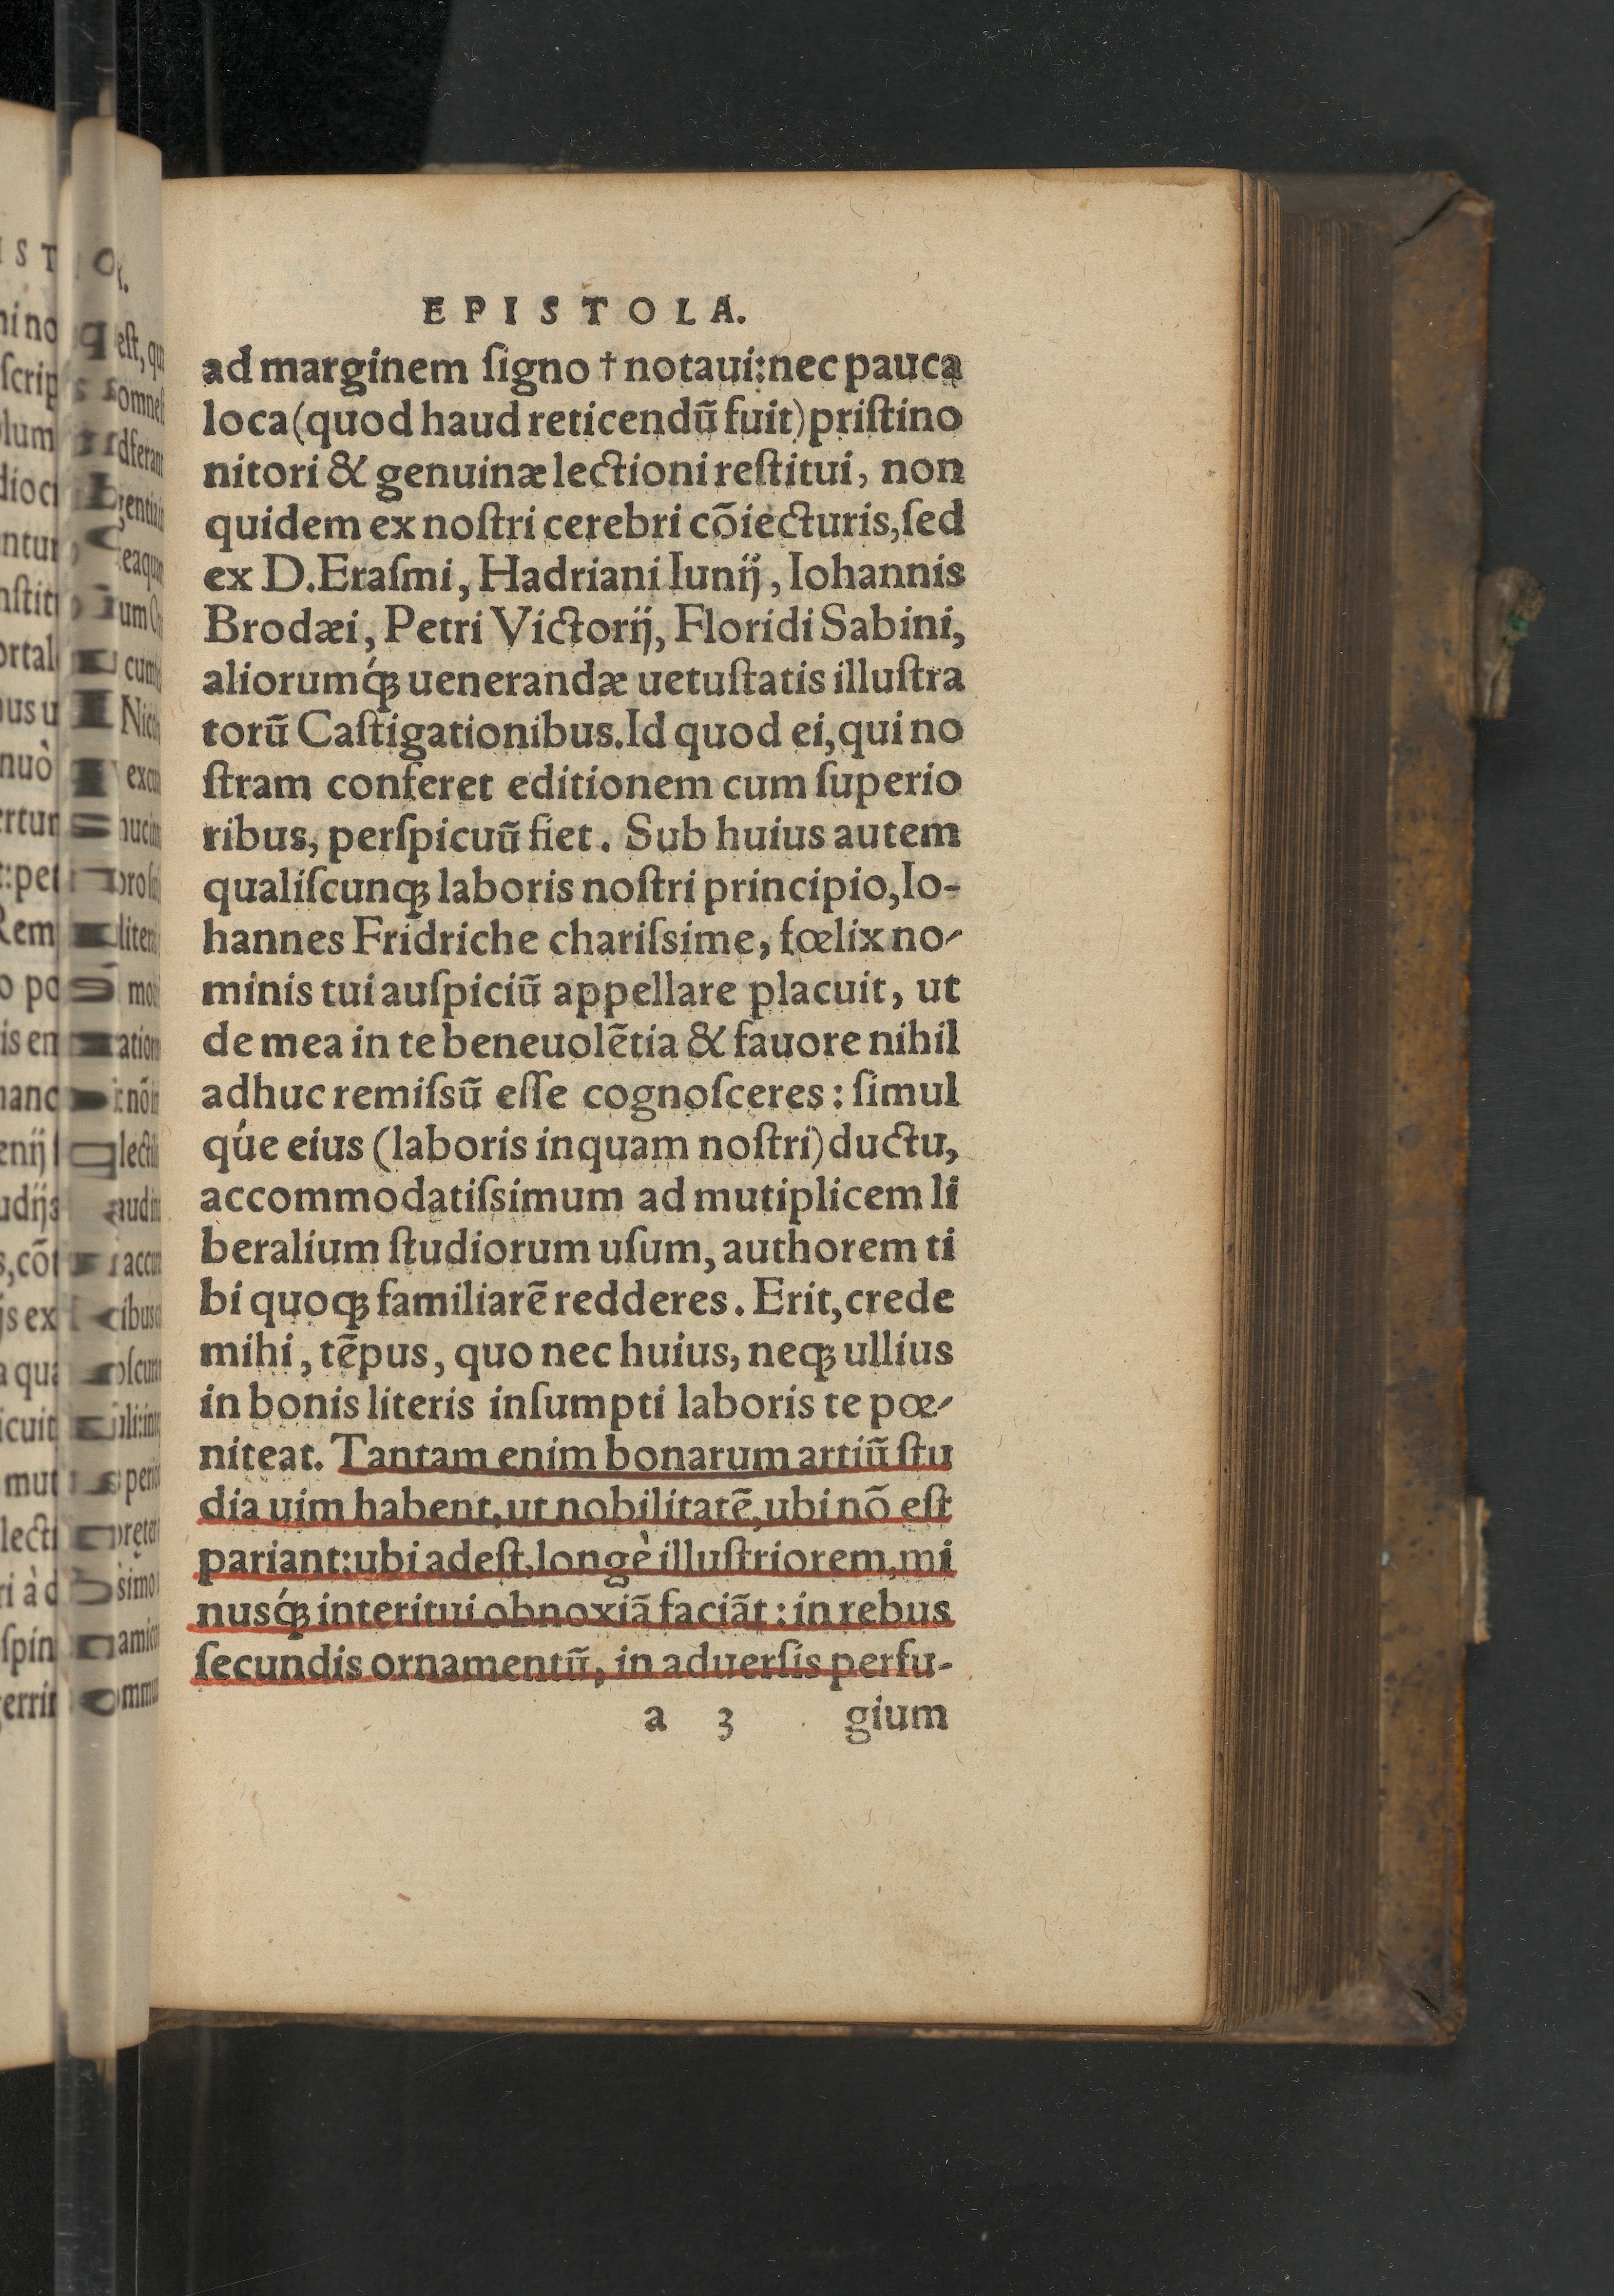 EPISTOLA.
ad marginem ſigno † notaui: nec pauca
loca (quod haud reticendũ fuit) priſtino
nitori & genuinæ lectioni reſtitui, non
quidem ex noſtri cerebri cõiecturis, ſed
ex D. Eraſmi, Hadriani Iunij, Iohannis
Brodæi, Petri Victorij, Floridi Sabini,
aliorumq́ꝫ uenerandæ uetuſtatis illuſtra
torũ Caſtigationibus. Id quod ei, qui no
ſtram conferet editionem cum ſuperio
ribus, perſpicuũ fiet. Sub huius autem
qualiſcunqꝫ laboris noſtri principio, Io-
hannes Fridriche chariſsime, fœlix no-
minis tui auſpiciũ appellare placuit, ut
de mea in te beneuolẽtia & fauore nihil
adhuc remiſsũ eſſe cognoſceres: ſimul
q́ue eius (laboris inquam noſtri) ductu,
accommodatiſsimum ad mutiplicem li
beralium ſtudiorum uſum, authorem ti
bi quoqꝫ familiarẽ redderes. Erit, crede
mihi, tẽpus, quo nec huius, neqꝫ ullius
in bonis literis inſumpti laboris te pœ-
niteat. Tantam enim bonarum artiũ ſtu
dia uim habent, ut nobilitatẽ, ubi nõ eſt
pariant: ubi adeſt, longè illuſtriorem, mi
nusq́ꝫ interitui obnoxiã faciãt: in rebus
ſecundis ornamentũ, in aduerſis perfu-
a 3 gium